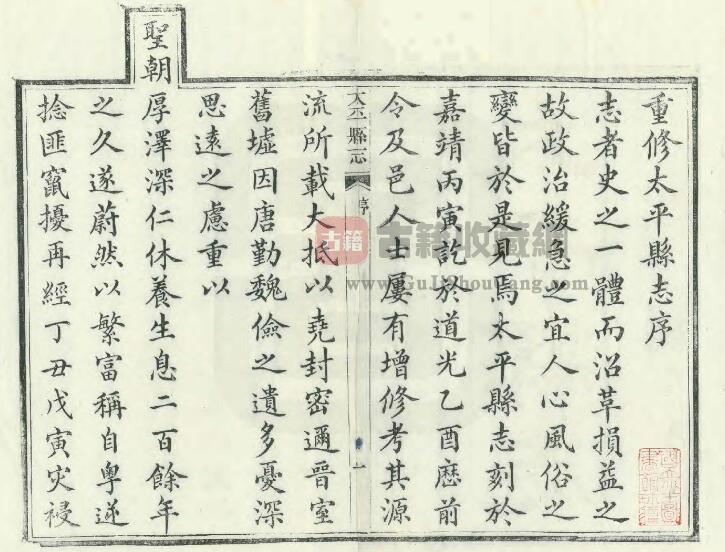 重修太平縣志序
志者史之一體而沿革損益之
故政治緩急之宜人心風俗之
變皆於是見焉太平縣志刻於
嘉靖丙寅訖於道光乙酉歷前
令及邑人士屢有增修考其源
太平縣志 序 一
流所載大抵以堯封密邇晉室
舊墟因唐勤魏儉之遺多憂深
思遠之慮重以
聖朝厚澤深仁休養生息二百餘年
之久遂蔚然以繁富稱自粵逆
捻匪竄擾再經丁丑戊寅灾祲
古籍 古籍收藏網
www.GuJiShouCang.com